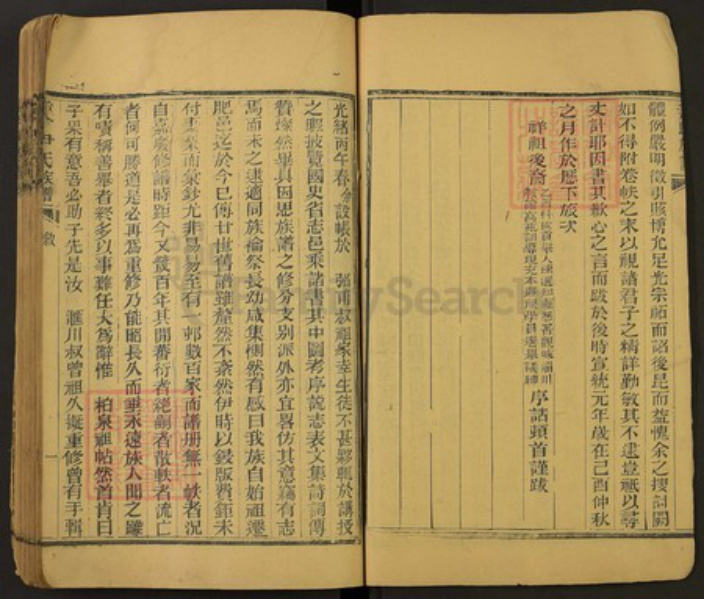 體例嚴明徵引賅博允足光宗祏而詔後昆而益愧余之搜訂闕
如不得附卷帙之末以視諸君子之精詳勤敏其不逮豈祗以尋
丈計耶因書其歉心之言而跋於後時宣統元年歲在己酉仲秋
之月作於歷下旅次
祥祖後裔
序詁頓首謹跋
光緒丙午春余設帳於 弼甫叔祖家幸生徒不甚夥輒於講授
之暇披覽國史省志邑乘諸書其中圖考序說志表文集詩詞傳
贊燦然畢具因思族譜之修分支別派外亦宜畧仿其意竊有志
焉而未之逮適同族禴祭長幼咸集惻然有感曰我族自始祖遷
肥邑迄於今已傳廿世舊譜雖釐然不紊然伊時以鋟版費鉅未
付棗梨而彙鈔尤非易易至有一邨數百家而譜册無一帙者況
自嘉慶修譜時距今又幾百年其間蕃衍者絕嗣者散軼者流亡
者何可勝道是必再為重修乃能昭長久而垂永遠族人聞之雖
有嘖稱善舉者終多以事難任大為辭惟 柏泉祖帖然首肯曰
子果有意吾必助子先是汝 滙川叔曾祖久擬重修曾有手輯
尹氏族譜
敘
一
FamilySearch